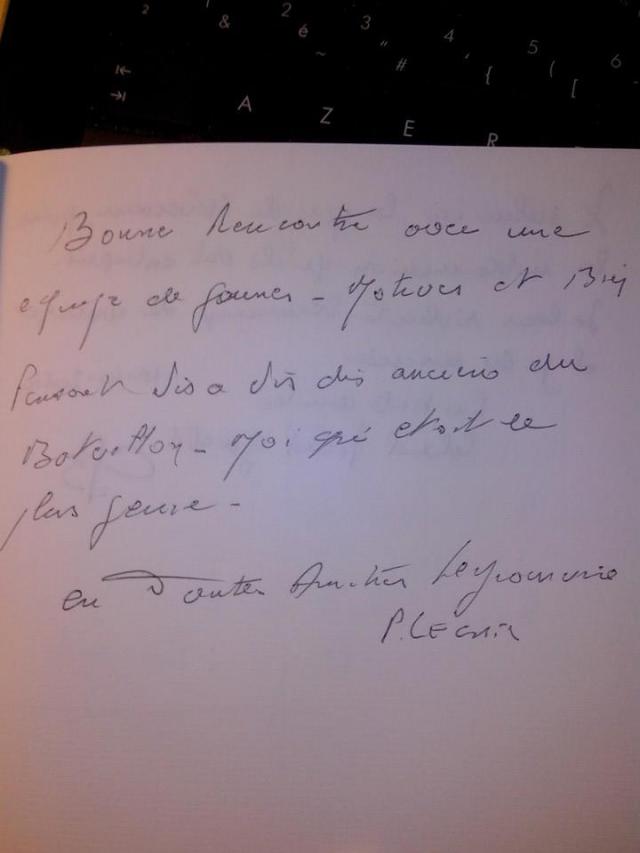 2 & 2 é ~ 3 " # 4 ' { 5 ( [ 6
A Z E R
Bonne Rencontre avec une
equipe de jeunes - Motives et Bien
Pensant vis a vis des anciens du
Bataillon - Moi qui etait le
plus jeune -
en Toutes Amities
P. LE